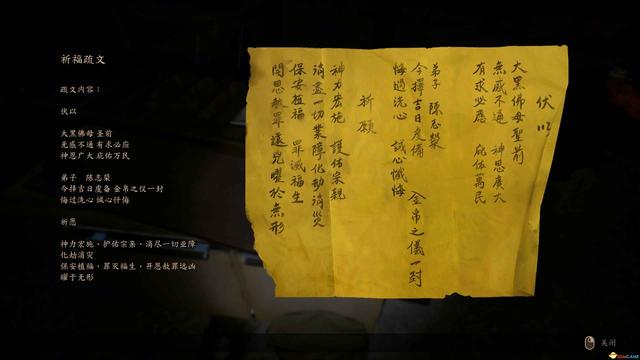 祈福疏文
疏文内容：
伏以
大黑佛母 圣前
无感不通 有求必应
神恩广大 庇佑万民
弟子　陈志荣
今择吉日度备 金帛之仪一封
悔过洗心 诚心忏悔
祈愿
神力宏施，护佑宗亲，消尽一切业障
化劫消灾
保安植福，罪灭福生，开恩赦罪远凶
曜于无形
伏以
大黑佛母聖前
無感不通　神恩廣大
有求必應　庇佑萬民
弟子 陳志榮
今擇吉日度備　金帛之儀一封
悔過洗心　誠心懺悔
祈願
神力宏施　護佑宗親
消盡一切業障化劫消災
保安植福　罪滅福生
開恩赦罪遠兇曜於無形
关闭